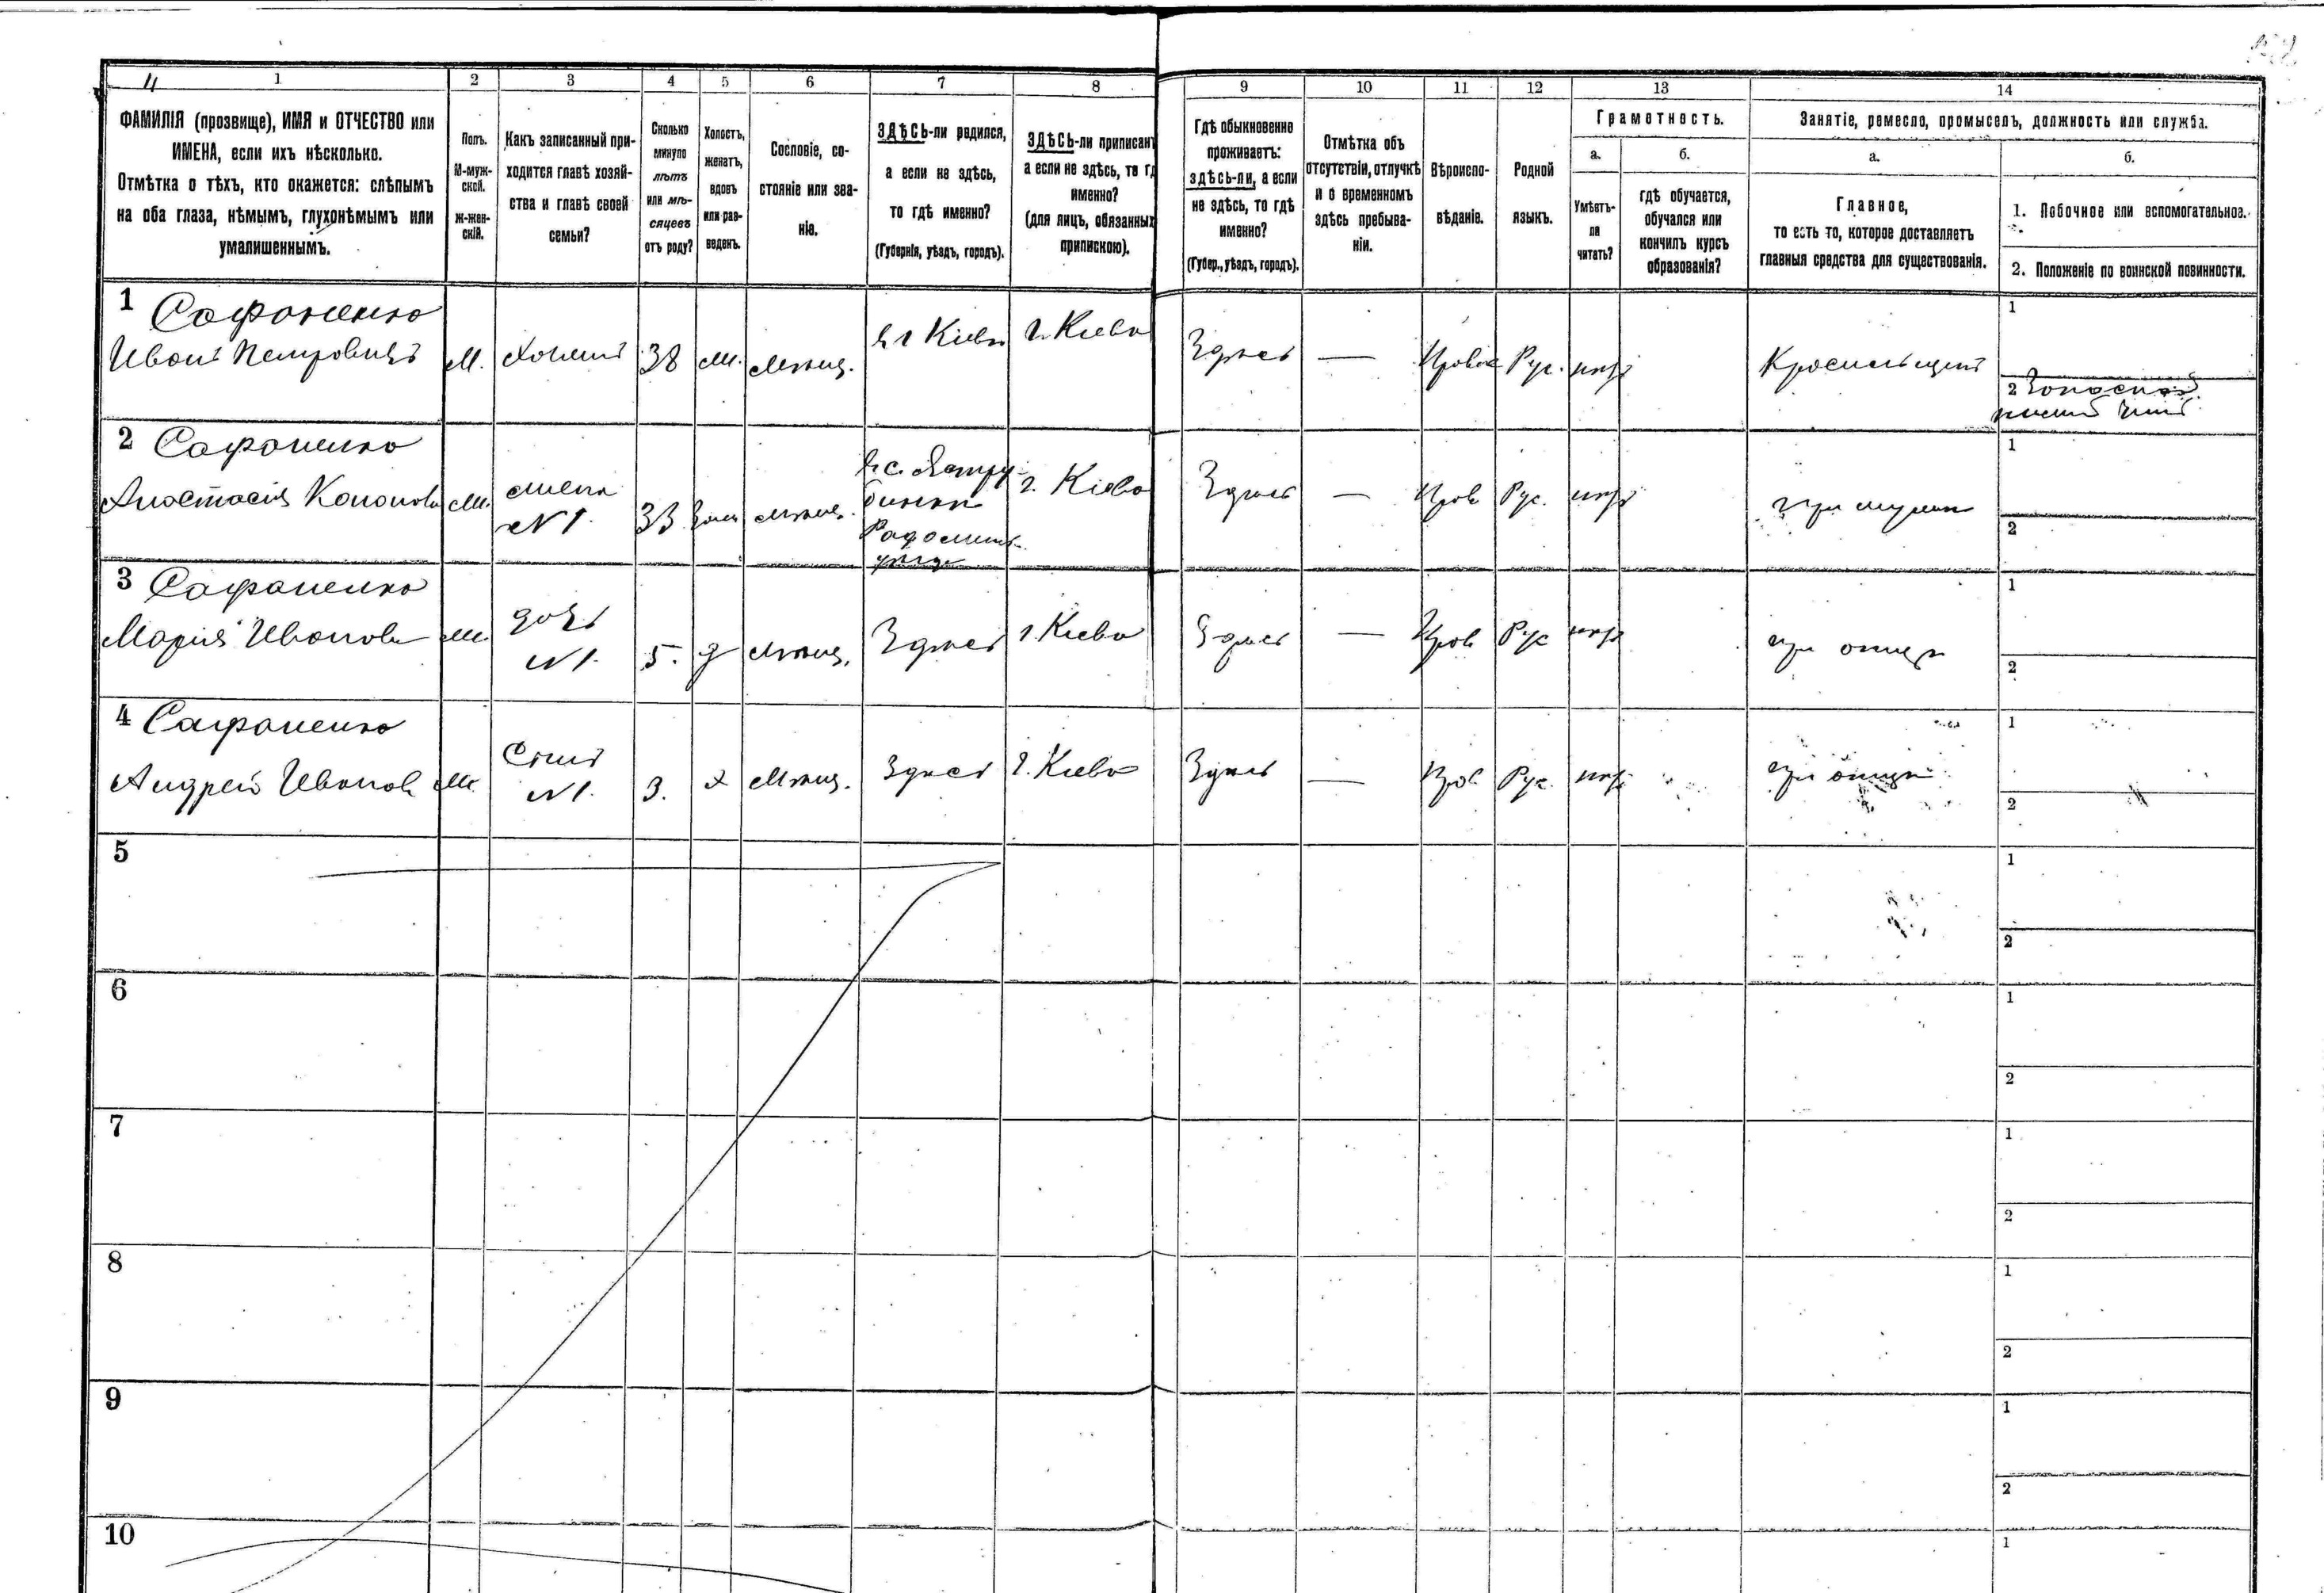 4
1 2 3 4 5 6 7 8 9 10 11 12 13 14
ФАМИЛІЯ (прозвище), ИМЯ и ОТЧЕСТВО или
ИМЕНА, если ихъ нѣсколько.
Отмѣтка о тѣхъ, кто окажется: слѣпымъ
на оба глаза, нѣмымъ, глухонѣмымъ или
умалишеннымъ.
Полъ.
М-муж-
ской.
Ж-жен-
скій.
Какъ записанный при-
ходится главѣ хозяй-
ства и главѣ своей
семьи?
Сколько
минуло
лѣтъ
или мѣ-
сяцевъ
отъ роду?
Холостъ,
женатъ,
вдовъ
или раз-
веденъ.
Сословіе, со-
стояніе или зва-
ніе.
ЗДѢСЬ-ли родился,
а если не здѣсь,
то гдѣ именно?
(Губернія, уѣздъ, городъ).
ЗДѢСЬ-ли приписан
а если не здѣсь, то гд
именно?
(для лицъ, обязанных
припискою).
Гдѣ обыкновенно
проживаетъ:
здѣсь-ли, а если
не здѣсь, то гдѣ
именно?
(Губер., уѣздъ, городъ).
Отмѣтка объ
отсутствіи, отлучкѣ
и о временномъ
здѣсь пребыва-
ніи.
Вѣроиспо-
вѣданіе.
Родной
языкъ.
Грамотность.
а.
Умѣетъ-
ли
читать?
б.
гдѣ обучается,
обучался или
кончилъ курсъ
образованія?
Занятіе, ремесло, промыселъ, должность или служба.
а.
Главное,
то есть то, которое доставляетъ
главныя средства для существованія.
б.
1. Побочное или вспомогательное.
2. Положеніе по воинской повинности.
1 Сафоненко
Иванъ Петровичъ М. Хозяинъ 38 Ж. Мѣщ. в г Кіевѣ г. Кіева Здѣсь — Правос Рус. нѣтъ Красильщикъ
1
2 Запасной
нижній чинъ
2 Сафоненко
Анастасія Кононова Ж. жена
N 1. 33 Зам мѣщ. г. Кіева Здѣсь — Прав Рус. нѣтъ при мужѣ
Радомысл.
уѣзда
1
2
3 Сафоненко
Марія Иванова Ж. дочь
N 1. 5. д мѣщ. Здѣсь г. Кіева Здѣсь — Прав Рус нѣтъ при отцѣ
1
2
4 Сафоненко
Андрей Иванов М. Сынъ
N 1. 3. х Мѣщ. Здѣсь г. Кіева Здѣсь — Прав Рус. нѣтъ при отцѣ
1
2
5
1
2
6
1
2
7
1
2
8
1
2
9
1
2
10
1